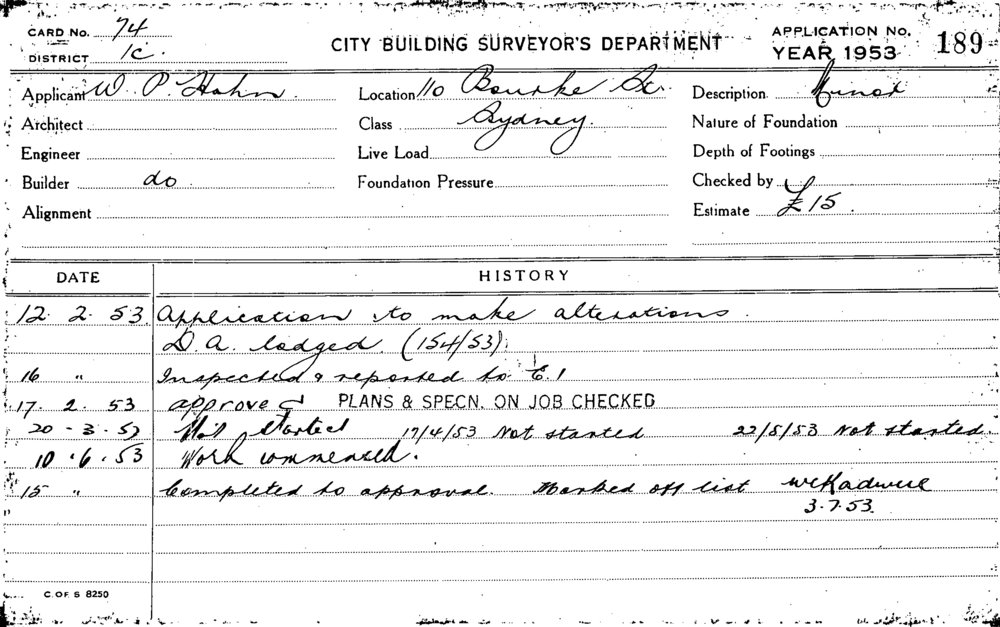 CARD No. 74
DISTRICT 1C.
CITY BUILDING SURVEYOR'S DEPARTMENT
APPLICATION No. 189
YEAR 1953
Applicant W. P. Hahn. Location 110 Bourke St. Description Minor
Architect Class Sydney. Nature of Foundation
Engineer Live Load Depth of Footings
Builder do Foundation Pressure Checked by
Alignment Estimate £15.
DATE HISTORY
12. 2. 53. Application to make alterations.
D.A. lodged. (154/53).
16 " Inspected & reported to E.1
17. 2. 53 approved PLANS & SPECN. ON JOB CHECKED
20-3-53 Not started 17/4/53 Not started 22/5/53 Not started.
10.6.53 Work commenced.
15 " Completed to approval. Marked off list
3.7.53.
C. OF. S 8250